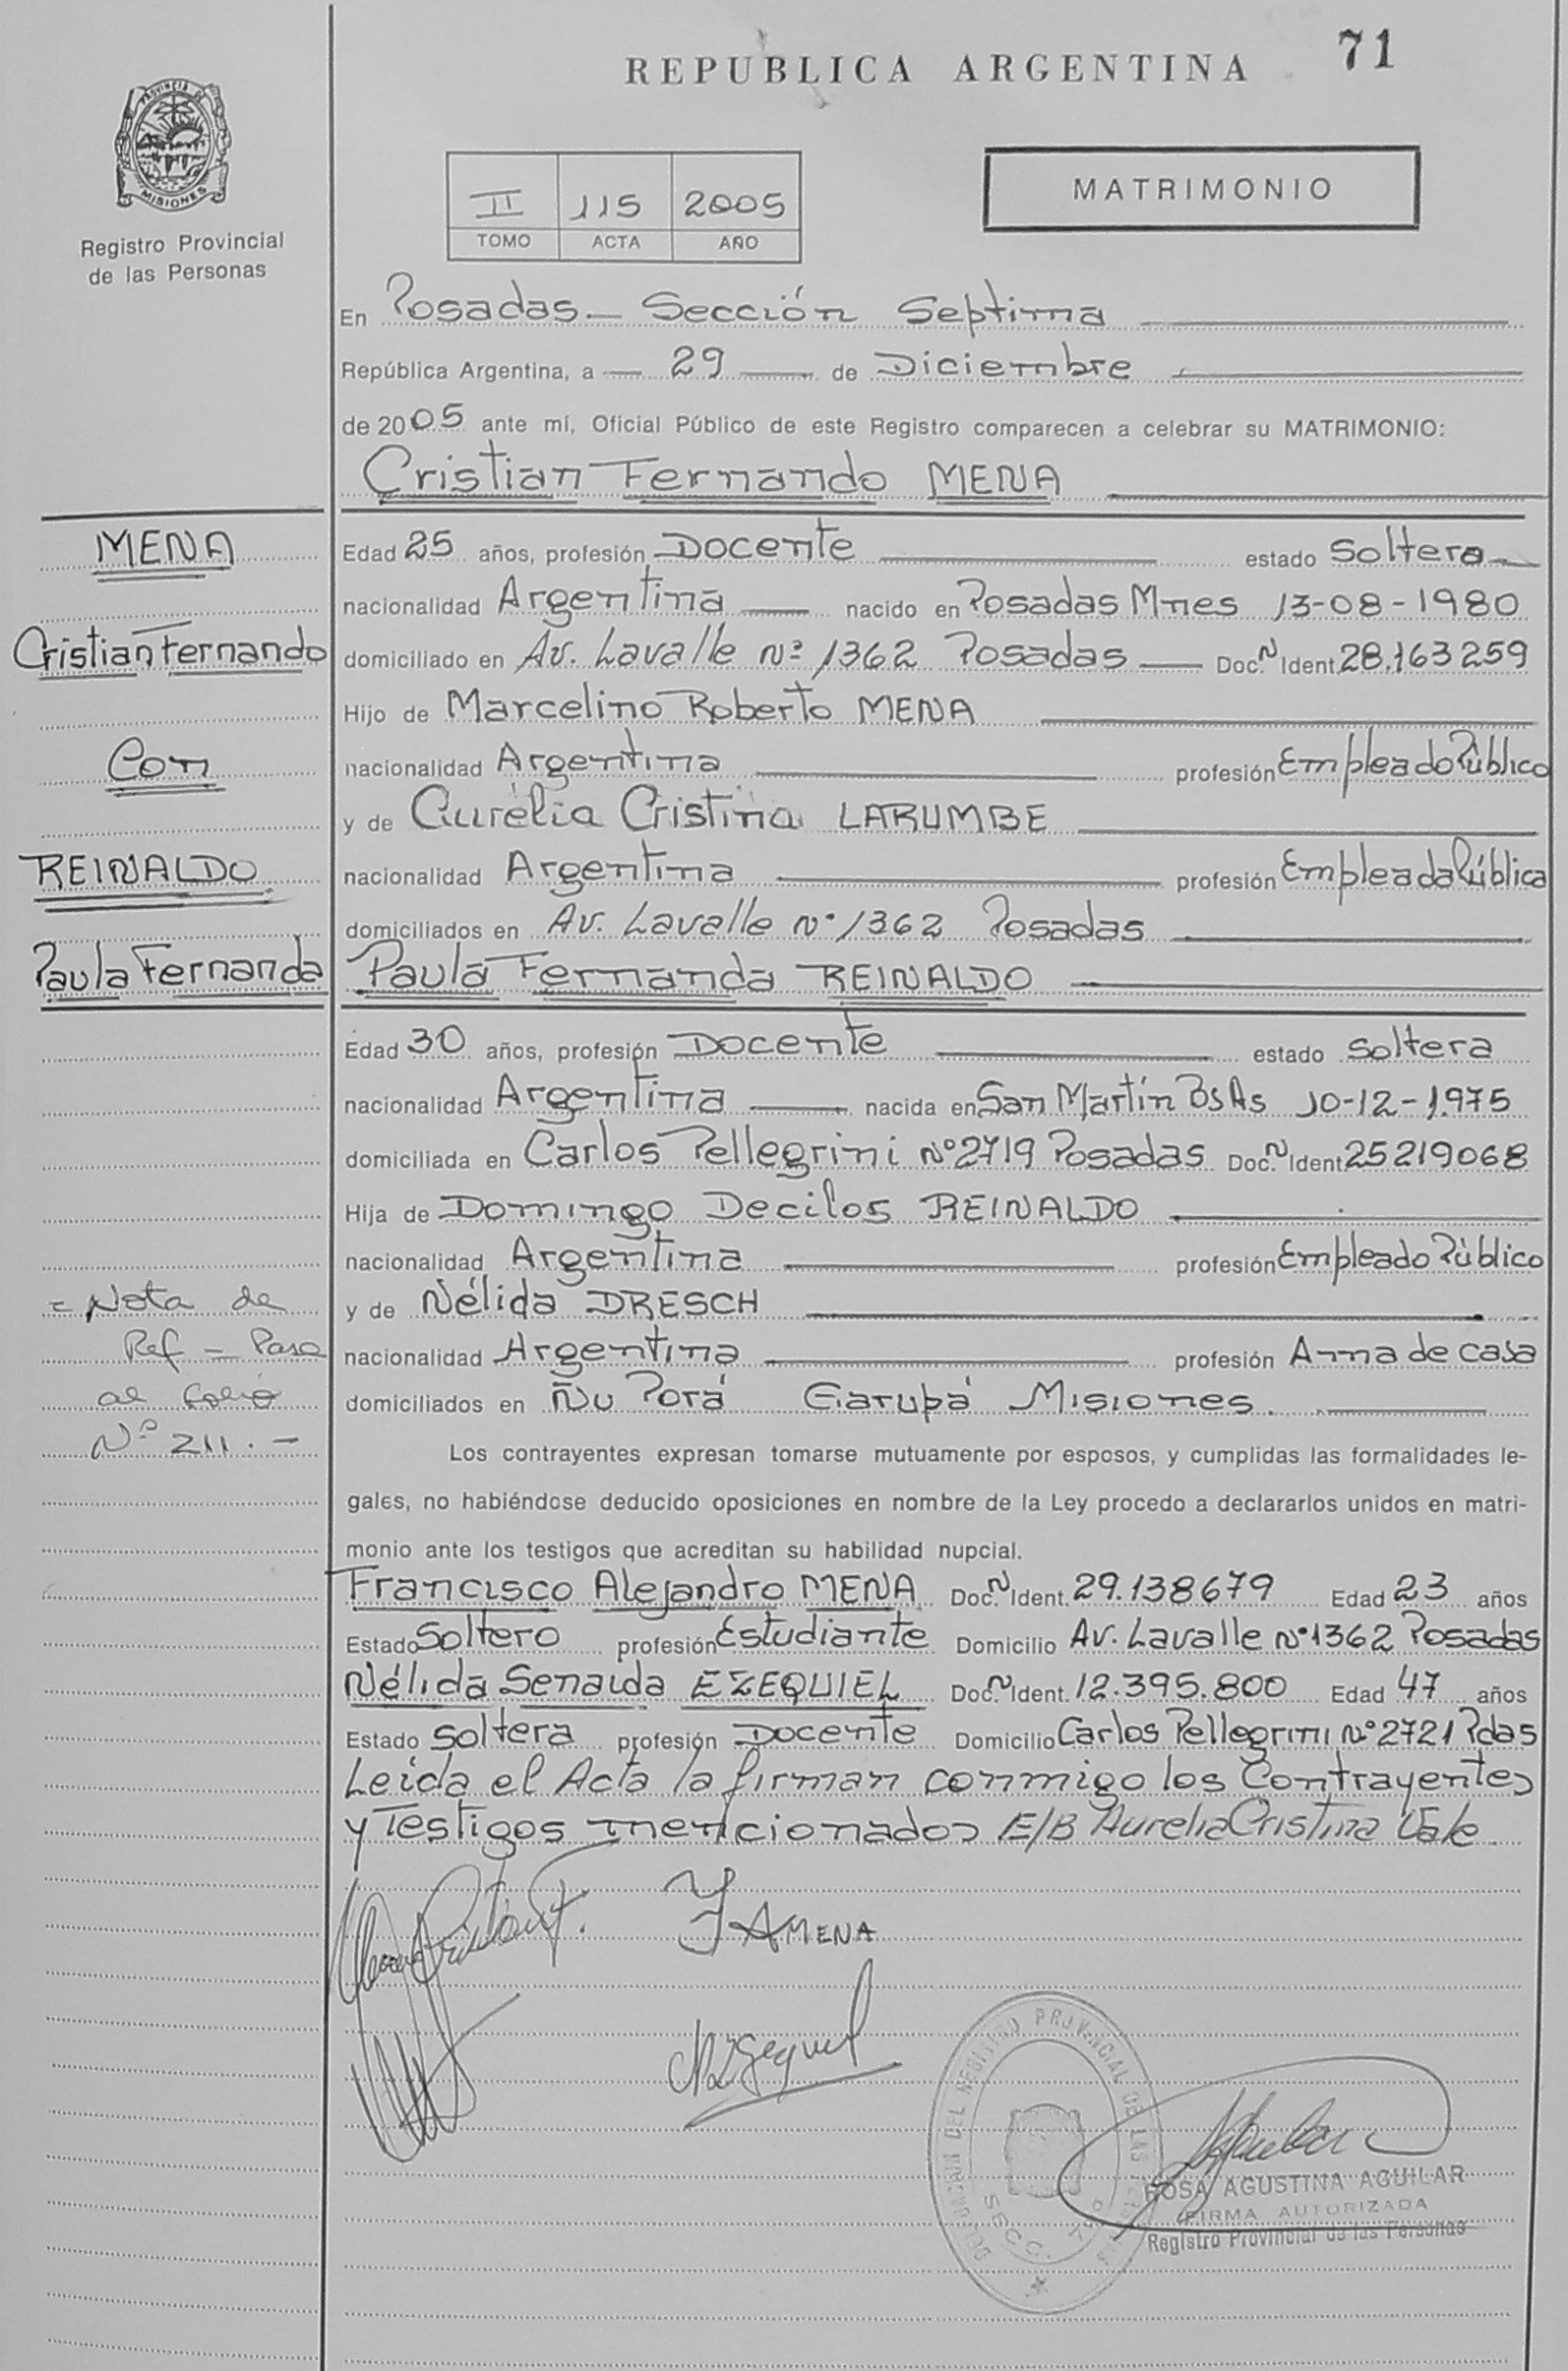 REPUBLICA ARGENTINA 71
PROVINCIA DE
MISIONES
Registro Provincial
de las Personas
II 115 2005
TOMO ACTA AÑO
MATRIMONIO
En Posadas — Sección Septima
República Argentina, a — 29 — de Diciembre
de 2005 ante mí, Oficial Público de este Registro comparecen a celebrar su MATRIMONIO:
Cristian Fernando MENA
MENA
Cristian Fernando
Con
REINALDO
Paula Fernanda
Edad 25 años, profesión Docente estado Soltero
nacionalidad Argentina nacido en Posadas Mnes 13-08-1980
domiciliado en Av. Lavalle Nº 1362 Posadas Doc. N Ident. 28.163259
Hijo de Marcelino Roberto MENA
nacionalidad Argentina profesión Empleado Público
y de Aurélia Cristina LARUMBE
nacionalidad Argentina profesión Empleada Pública
domiciliados en Av. Lavalle Nº 1362 Posadas
Paula Fernanda REINALDO
Edad 30 años, profesión Docente estado Soltera
nacionalidad Argentina nacida en San Martín Bs As 10-12-1.975
domiciliada en Carlos Pellegrini Nº 2719 Posadas Doc. N Ident 25219068
Hija de Domingo Decilos REINALDO
nacionalidad Argentina profesión Empleado Público
y de Nélida DRESCH
nacionalidad Argentina profesión Ama de casa
domiciliados en Ñu Porá Garupá Misiones.
= Nota de
Ref = Pasa
al folio
Nº 211.-
Los contrayentes expresan tomarse mutuamente por esposos, y cumplidas las formalidades le-
gales, no habiéndose deducido oposiciones en nombre de la Ley procedo a declararlos unidos en matri-
monio ante los testigos que acreditan su habilidad nupcial.
Francisco Alejandro MENA Doc. N Ident. 29.138679 Edad 23 años
Estado Soltero profesión Estudiante Domicilio Av. Lavalle Nº 1362 Posadas
Nélida Senaida EZEQUIEL Doc. N Ident. 12.395.800 Edad 47 años
Estado Soltera profesión Docente Domicilio Carlos Pellegrini Nº 2721 Pdas
Leida el Acta la firman conmigo los Contrayentes
y Testigos mencionados E/B Aurelia Cristina Vale.
F A MENA
DELEGACION DEL REGISTRO PROVINCIAL DE LAS PERSONAS
SECC.
ROSA AGUSTINA AGUILAR
FIRMA AUTORIZADA
Registro Provincial de las Personas